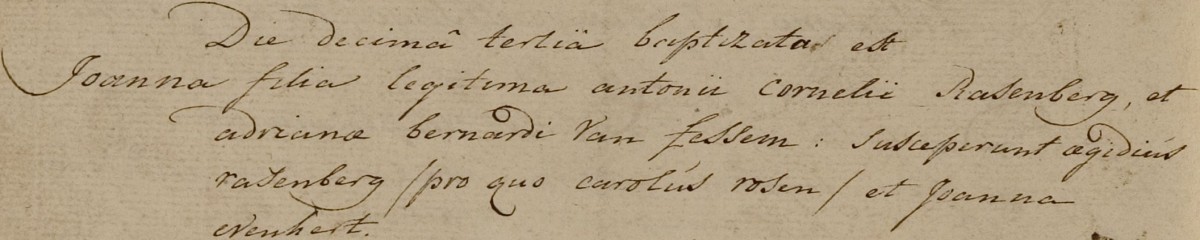 Die decimâ tertiâ baptizata est
Joanna filia legitima antonii Cornelii Rasenberg, et
adrianæ bernardi Van fessem : susceperunt ægidiús
rasenberg /pro quo carolús rosen/ et Joanna
evenhert.